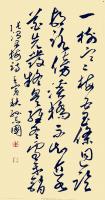 一樹寒梅白玉條迥臨
村路傍溪橋不知近水
花先發疑是經冬雪未銷
早梅詩 秋